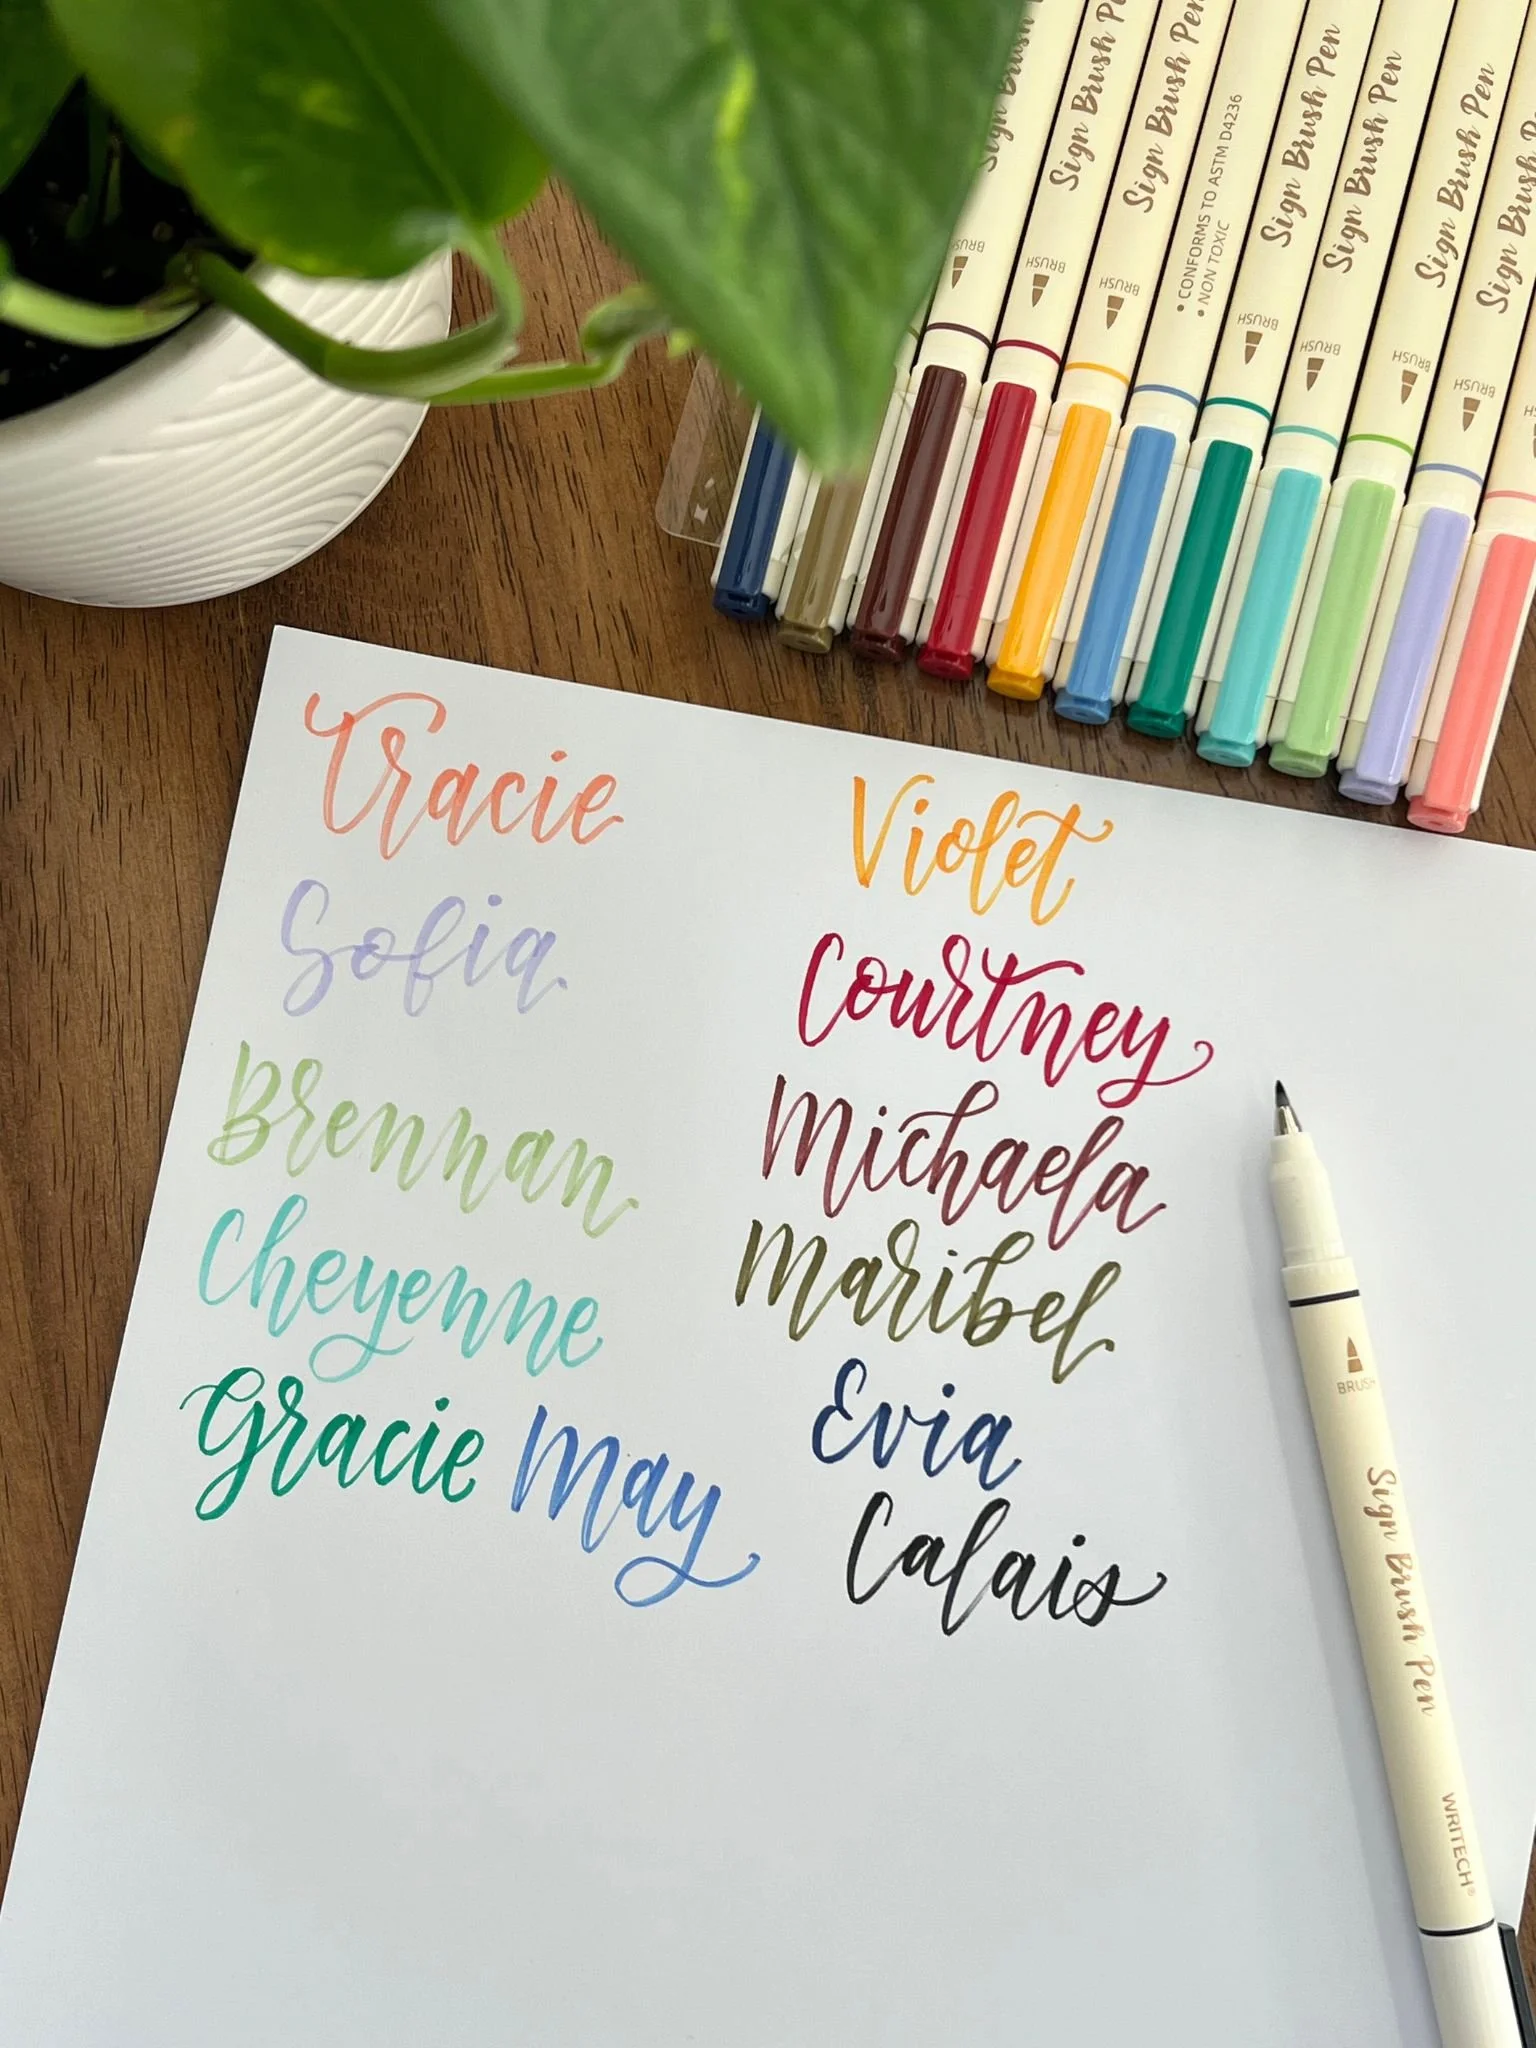 Sign Brush Pen
BRUSH
Sign Brush Pen
BRUSH
Sign Brush Pen
BRUSH
• CONFORMS TO ASTM D4236
• NON TOXIC
Sign Brush Pen
BRUSH
Sign Brush Pen
BRUSH
Sign Brush Pen
BRUSH
Sign Brush
BRUSH
Tracie
Sofia
Brennan
Cheyenne
Gracie May
Violet
Courtney
Michaela
Maribel
Evia
Calais
BRUSH
Sign Brush Pen
WRITECH®